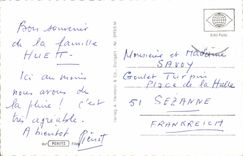 Bon souvenir
de la famille
HUETT
Ici au moins
nous avons de
la pluie ! c'est
très agréable.
A bientôt
PERUTZ
Monsieur et Madame
SAVOY
Goulet Turpin
Place de la Halle
51 SEZANNE
FRANKREICH